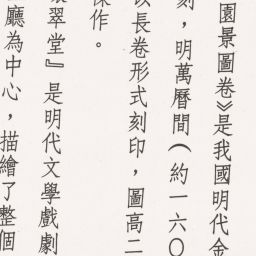 園景圖卷》是我國明代金
刻，明萬曆間(約一六〇
以長卷形式刻印，圖高二
傑作。
翠堂』是明代文學戲劇
廳為中心，描繪了整個